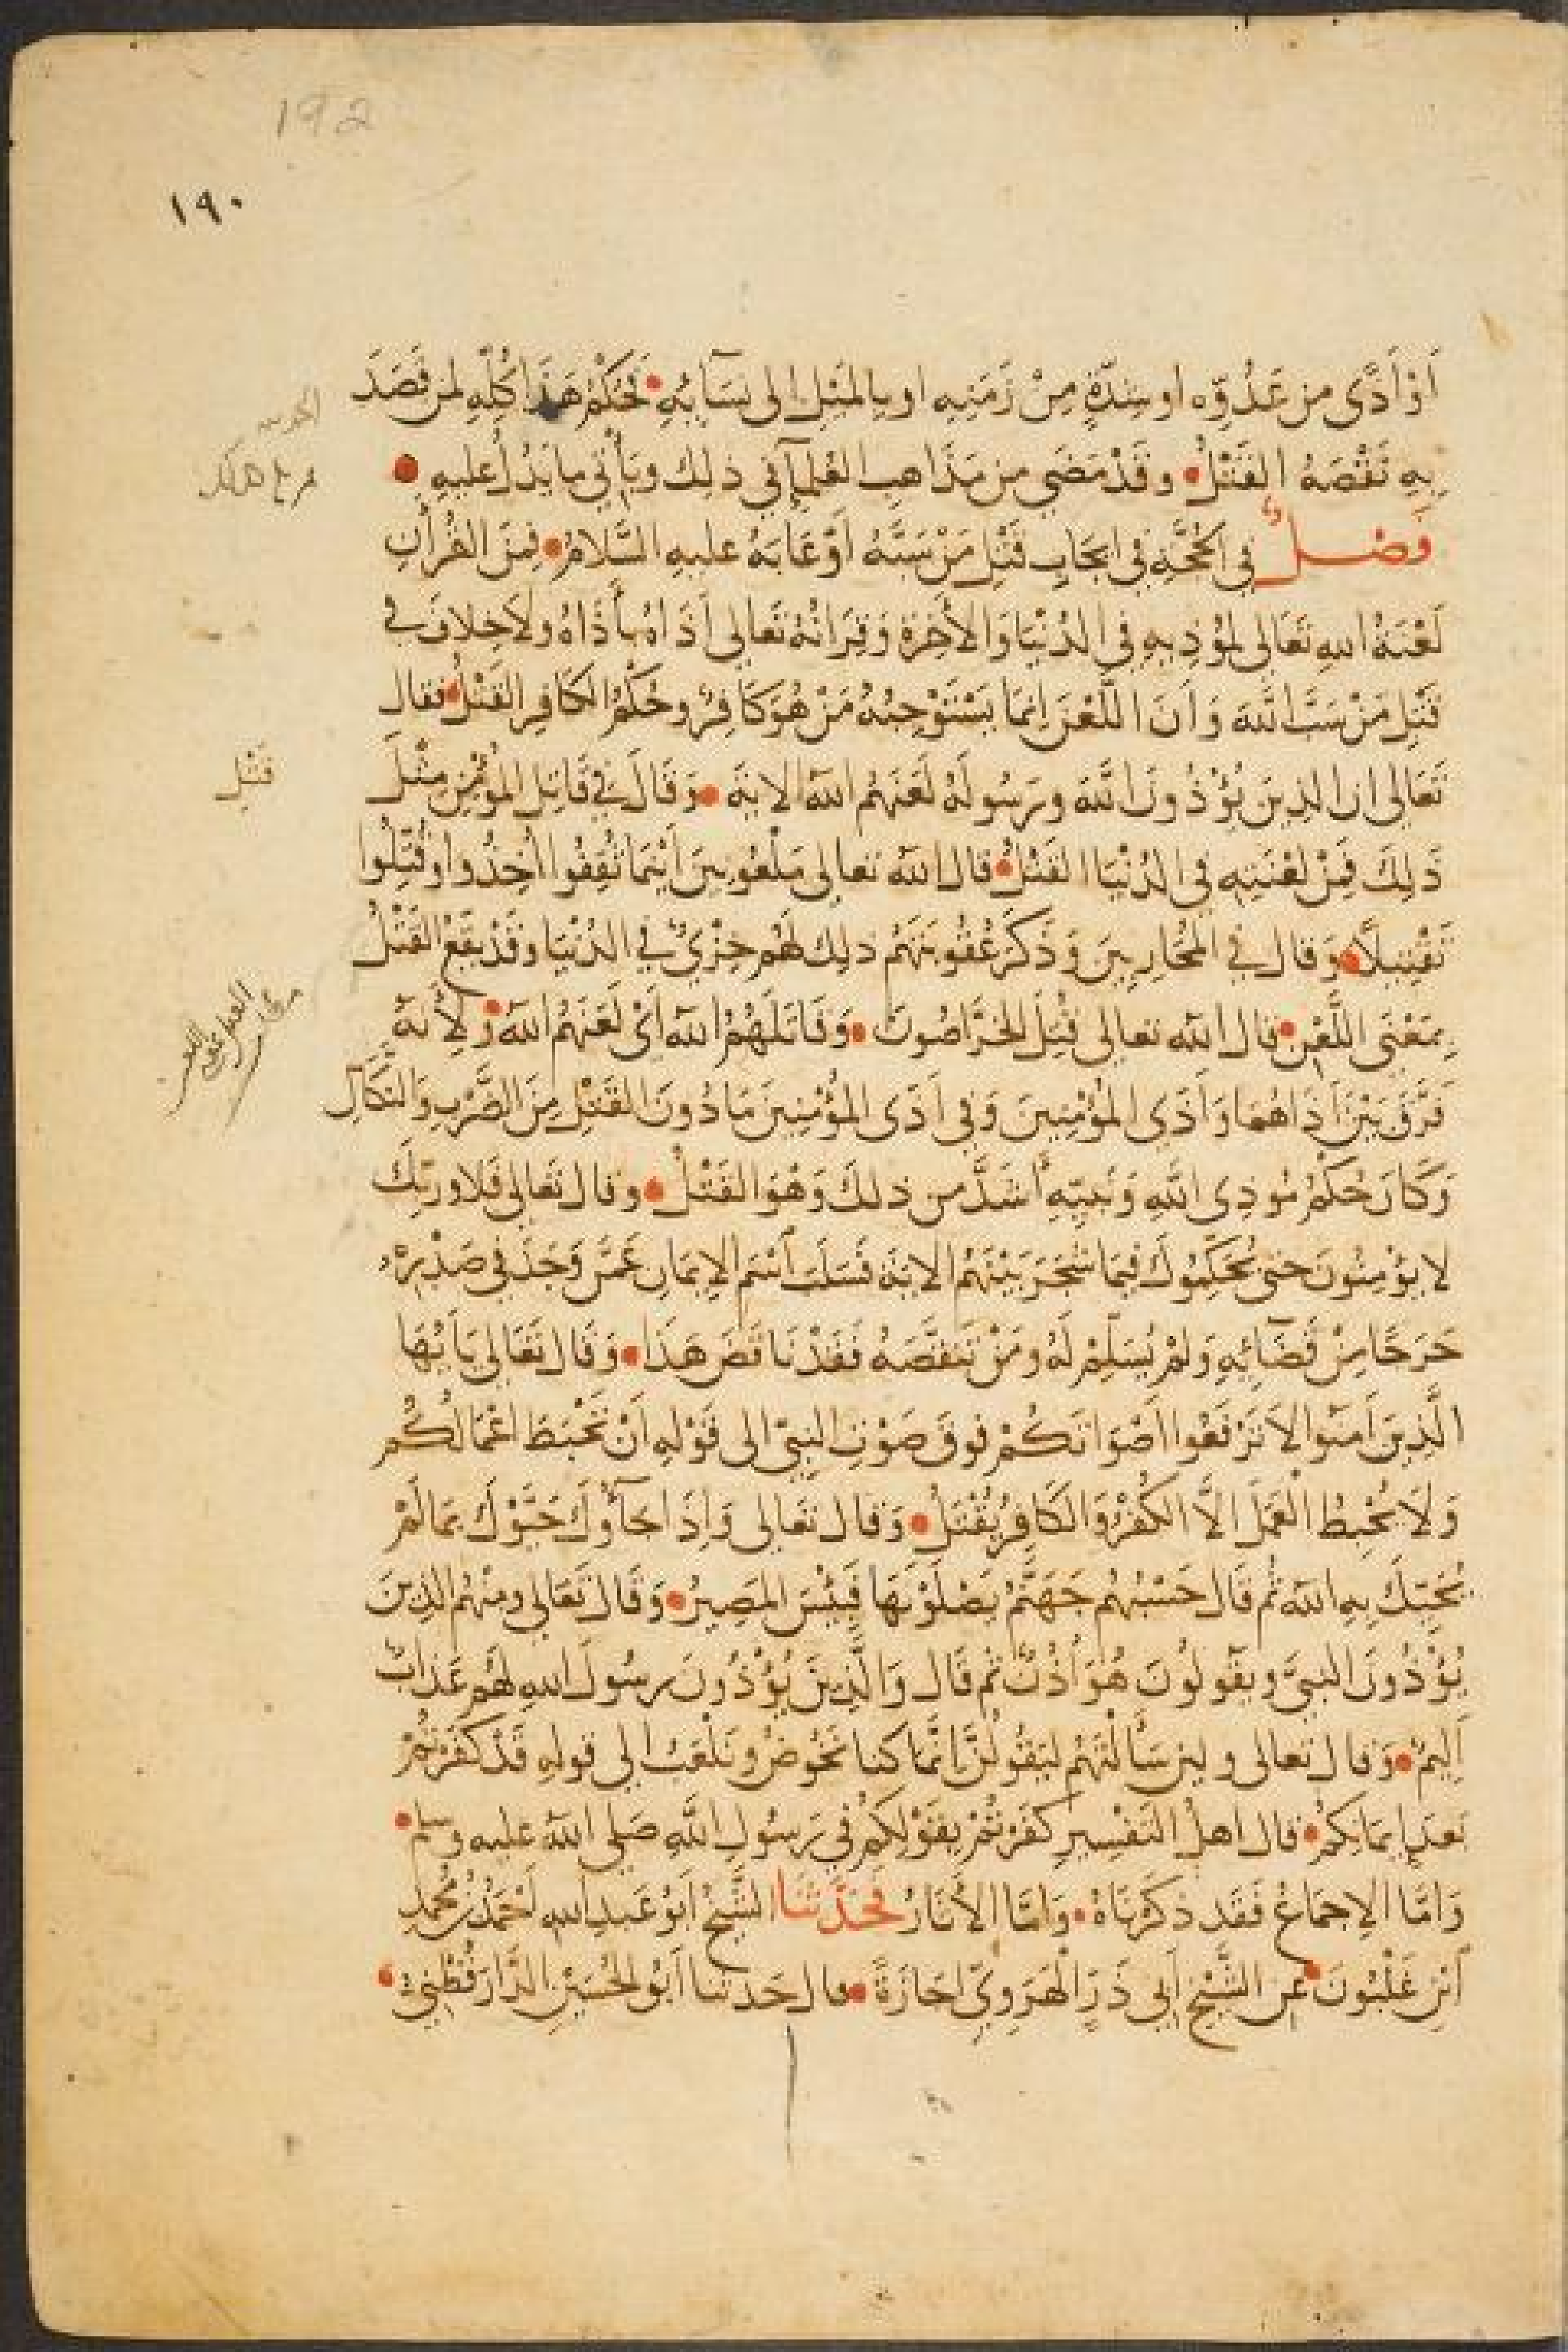 192
١٩٠
أَوْ أَذًى من عَدُوِّه او شِدَّةٍ مِنْ زَمَنِه او بالمَيْلِ الى نِسَآئِهِ فَحُكْمُ هَذَا كُلِّهِ لمن قَصَدَ
بِهِ نَقْصَهُ القَتْلُ وقَدْ مَضَى من مَذَاهِبِ العُلمآءِ في ذلك ويَأْتي ما يَدُلُّ عليهِ
فَصْلٌ في الحُجَّةِ في ايجَابِ قَتْلِ مَنْ سَبَّهُ أَوْ عَابَهُ عليهِ السَّلامُ فمِنَ القُرآنِ
لَعْنَةُ اللهِ تَعَالى لمُؤْذِيهِ في الدُّنْيَا وَالآخِرَةِ وَقِرَانُهُ تَعَالى أَذَاهُ بأَذَاهُ ولا خِلافَ في
قَتْلِ مَنْ سَبَّ اللهَ وَأَنَّ اللَّعْنَ إنمَا يَسْتَوْجِبُهُ مَنْ هُوَ كَافِرٌ وحُكْمُ الكَافِرِ القَتْلُ فقال
تَعَالى ان الذِينَ يُؤْذُونَ اللهَ ورَسُولَهُ لَعَنَهُم اللهُ الاية وَقَالَ في قَاتِلِ المُؤْمِنِ مِثْلَ
قَتْل
ذَلِكَ فَمِنْ لَعْنَتِهِ في الدُنْيَا القَتْلُ قال الله تعالى مَلْعُونِينَ أَيْنمَا ثُقِفُوا أُخِذُوا وَقُتِّلُوا
تَقْتِيلًا وَقال في المُحَارِبينَ وَذَكَرَ عُقُوبَتَهُم ذلِك لَهُم خِزْيٌ في الدُنْيَا وقَدْ يَقَعُ القَتْلُ
بِمَعْنَى اللَّعْنِ قال الله تعالى قُتِلَ الخَرَّاصُونَ وَقَاتَلَهُمُ الله أَيْ لَعَنَهُمُ الله وَلِأَنَّهُ
فَرَّقَ بَيْنَ أَذَاهُمَا وَأَذَى المُؤْمِنِينَ وَفي أَذَى المُؤْمِنِينَ مَا دُونَ القَتْلِ مِنَ الضَّرْبِ وَالنَّكَالِ
وَكَانَ حُكْمُ مُوذِى اللهِ وَنَبِيِّهِ أَشَدَّ من ذلكَ وَهْوَ القَتْلُ وقال تَعَالى فَلا وربِّك
لا يؤمِنُونَ حتى يُحَكِّمُوكَ فِيمَا شَجَرَ بَيْنَهُم الايةَ فَسَلَبَ اسْمَ الإيمَانِ عَمَّنْ وَجَدَ في صَدْرِهِ
حَرَجًا مِنْ قَضَآئِهِ وَلمْ يُسَلِّمْ لَهُ ومَنْ تَنَقَّصَهُ فَقَدْ نَاقَضَ هَذَا وَقَال تَعَالى يَأَيُّهَا
الَّذِينَ آمَنُوا لاَ تَرْفَعُوا أَصْوَاتكُمْ فوق صَوْتِ النبيّ الى قَوْلهِ أَنْ تَحْبَطَ اعْمَالكُم
وَلَا يُحْبِطُ العَمَلَ الَّا الكُفْرُ وَالكَافِرُ يُقْتَلُ وَقال تَعَالى وَإِذَا جَآؤُكَ حَيَّوْكَ بمَا لَمْ
يُحَيِّكَ بِهِ الله ثُم قَال حَسْبُهُم جَهَنَّمُ يَصْلَوْنَهَا فَبِئْسَ المَصِيرُ وَقَال تَعَالى ومِنْهُم الذِينَ
يُؤْذُونَ النبيَّ ويقُولُونَ هُوَ أُذُنٌ ثم قَال وَالَّذِينَ يُؤْذُونَ رسُولَ اللهِ لَهُم عَذَابٌ
اَلِيمٌ وَقال تعالى ولئن سَأَلْتَهُم ليَقُولُنَّ إِنَّمَا كنا نَخُوضُ ونَلْعَبُ الى قولِهِ قَدْ كَفَرْتُمْ
بَعدَ إِيمَانِكم قال اهلُ التفْسِيرِ كَفَرْتُمْ بِقَوْلِكُم في رَسُولِ اللهِ صَلى الله عليه وسلم
وَامَّا الإِجمَاعُ فَقَد ذكَرْنَاهُ وَامَّا الآثَارُ فَحَدَّثَنَا الشَّيْخُ أَبُو عَبدِ الله أَحْمَدُ بنُ مُحَمَّدِ
ابْنِ غَلْبُونَ عن الشَّيْخِ أَبي ذَرٍّ الهَرَوِيِّ إجَازَةً قال حَدثَنا أَبُو الحُسَيْنِ الدَّارَقُطْنِيُّ